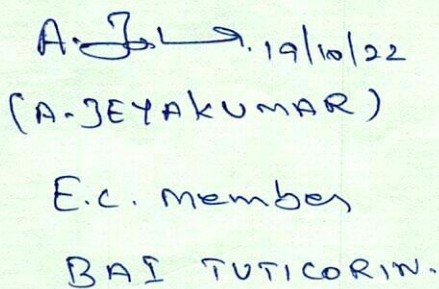 A. 19/10/22
(A. JEYAKUMAR)
E.C. member
BAI TUTICORIN.